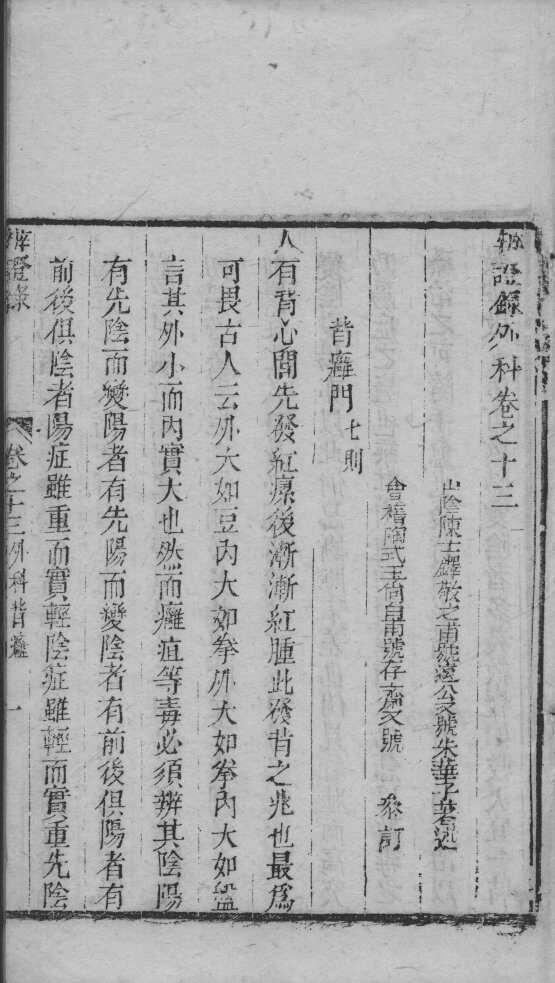 辨證錄外科卷之十三
山陰陳士鐸敬之甫號遠公又號朱華子著述
會稽陶式玉尚白甫號存齋又號 叅訂
背癰門七則
人有背心間先發紅瘰後漸漸紅腫此發背之兆也最爲
可畏古人云外大如豆內大如拳外大如拳內大如盌
言其外小而內實大也然而癰疽等毒必須辨其陰陽
有先陰而變陽者有先陽而變陰者有前後俱陽者有
前後俱陰者陽症雖重而實輕陰症雖輕而實重先陰
辨證錄
卷之十三外科背癰
一